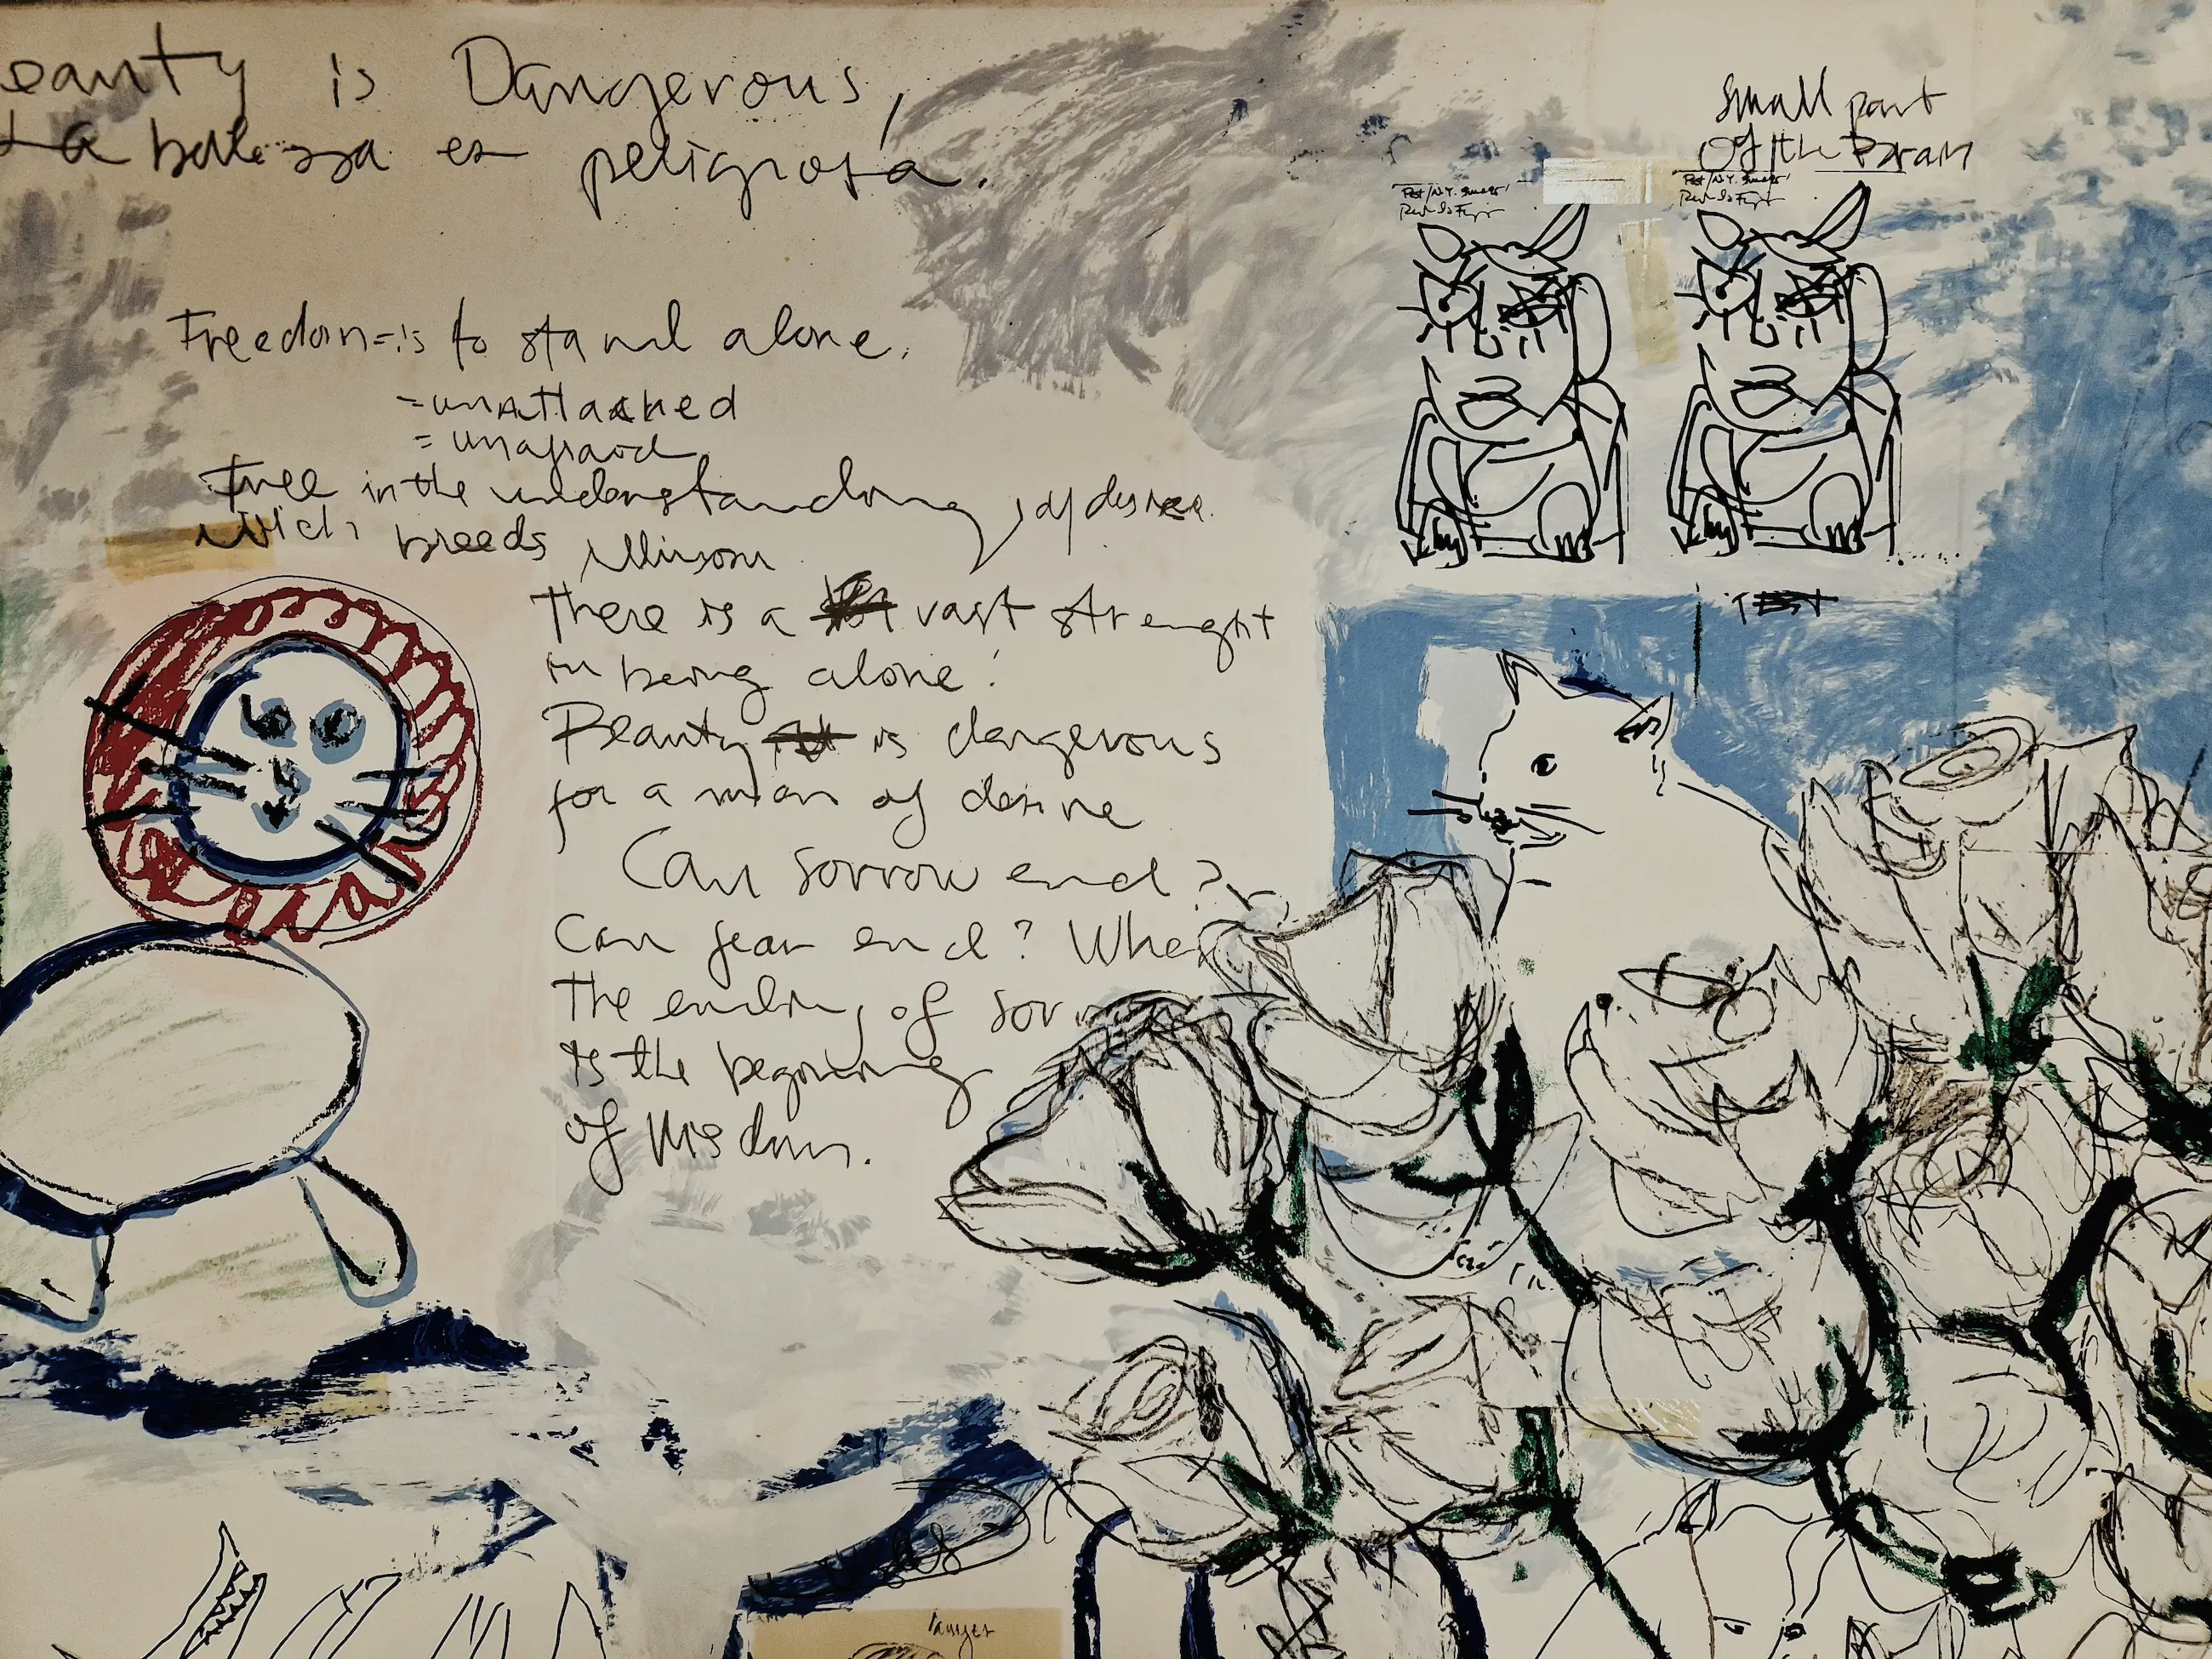 eauty is Dangerous,
La belessa es peligrosa.
Freedom = is to stand alone.
= unattacked
= unafraod
Free in the understanding, of desire.
wich breeds illusion
There is a vast strenght
in being alone!
Beauty is dangerous
for a man of desire
Can sorrow end?
Can fear end? Whe
The ending of sorr
is the beginning
of Wisdom.
Small part
Of the Brain